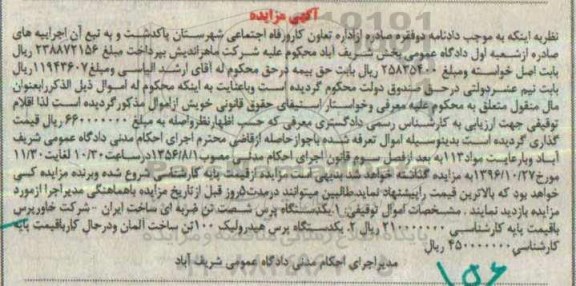 آگهی مزایده
نظریه اینکه به موجب دادنامه دوفقره صادره ازاداره تعاون کارورفاه اجتماعی شهرستان پاکدشت و به تبع آن اجراییه های
صادره ازشعبه اول دادگاه عمومی بخش شریف آباد محکوم علیه شرکت ماهراندیش بپرداخت مبلغ ۲۳۸۸۷۲۱۵۶ ریال
بابت اصل خواسته ومبلغ ۲۵۸۳۵۴۰۰ ریال بابت حق بیمه درحق محکوم له آقای ارشد الیاسی ومبلغ۱۱۹۴۳۶۰۷ریال
بابت نیم عشردولتی درحق صندوق دولت محکوم گردیده است وباعنایت به اینکه محکوم له اموال ذیل الذکررابعنوان
مال منقول متعلق به محکوم علیه معرفی وخواستار استیفای حقوق قانونی خویش ازاموال مذکورگردیده است لذا اقلام
توقیفی جهت ارزیابی به کارشناس رسمی دادگستری معرفی که حسب اظهارنظرواصله به مبلغ ۶۶۰۰۰۰۰۰۰ ریال قیمت
گذاری گردیده است بدینوسیله اموال تعرفه شده باجوازحاصله ازقاضی محترم اجرای احکام مدنی دادگاه عمومی شریف
آباد وبارعایت مواد۱۱۳به بعد ازفصل سوم قانون اجرای احکام مدنی مصوب۱۳۵۶/۸/۱درساعت۱۰/۳۰ لغایت۱۱/۳۰
مورخ۱۳۹۶/۱۰/۲۷به مزایده گذاشته خواهد شد بدیهی است مزایده ازقیمت پایه کارشناسی شروع شده وبرنده مزایده کسی
خواهد بود که بالاترین قیمت راپیشنهاد نمایدطالبین میتوانند درمدت۵روز قبل ازتاریخ مزایده باهماهنگی مدیراجرا ازمورد
مزایده بازدید نمایند . مشخصات اموال توقیفی: ۱.یکدستگاه پرس شصت تن ضربه ای ساخت ایران - شرکت خاورپرس
باقیمت پایه کارشناسی ۲۱۰۰۰۰۰۰۰ ریال ۲. یکدستگاه پرس هیدرولیک ۱۰۰تن ساخت آلمان ودرحال کارباقیمت پایه
کارشناسی۴۵۰۰۰۰۰۰۰ ریال
مدیراجرای احکام مدنی دادگاه عمومی شریف آباد